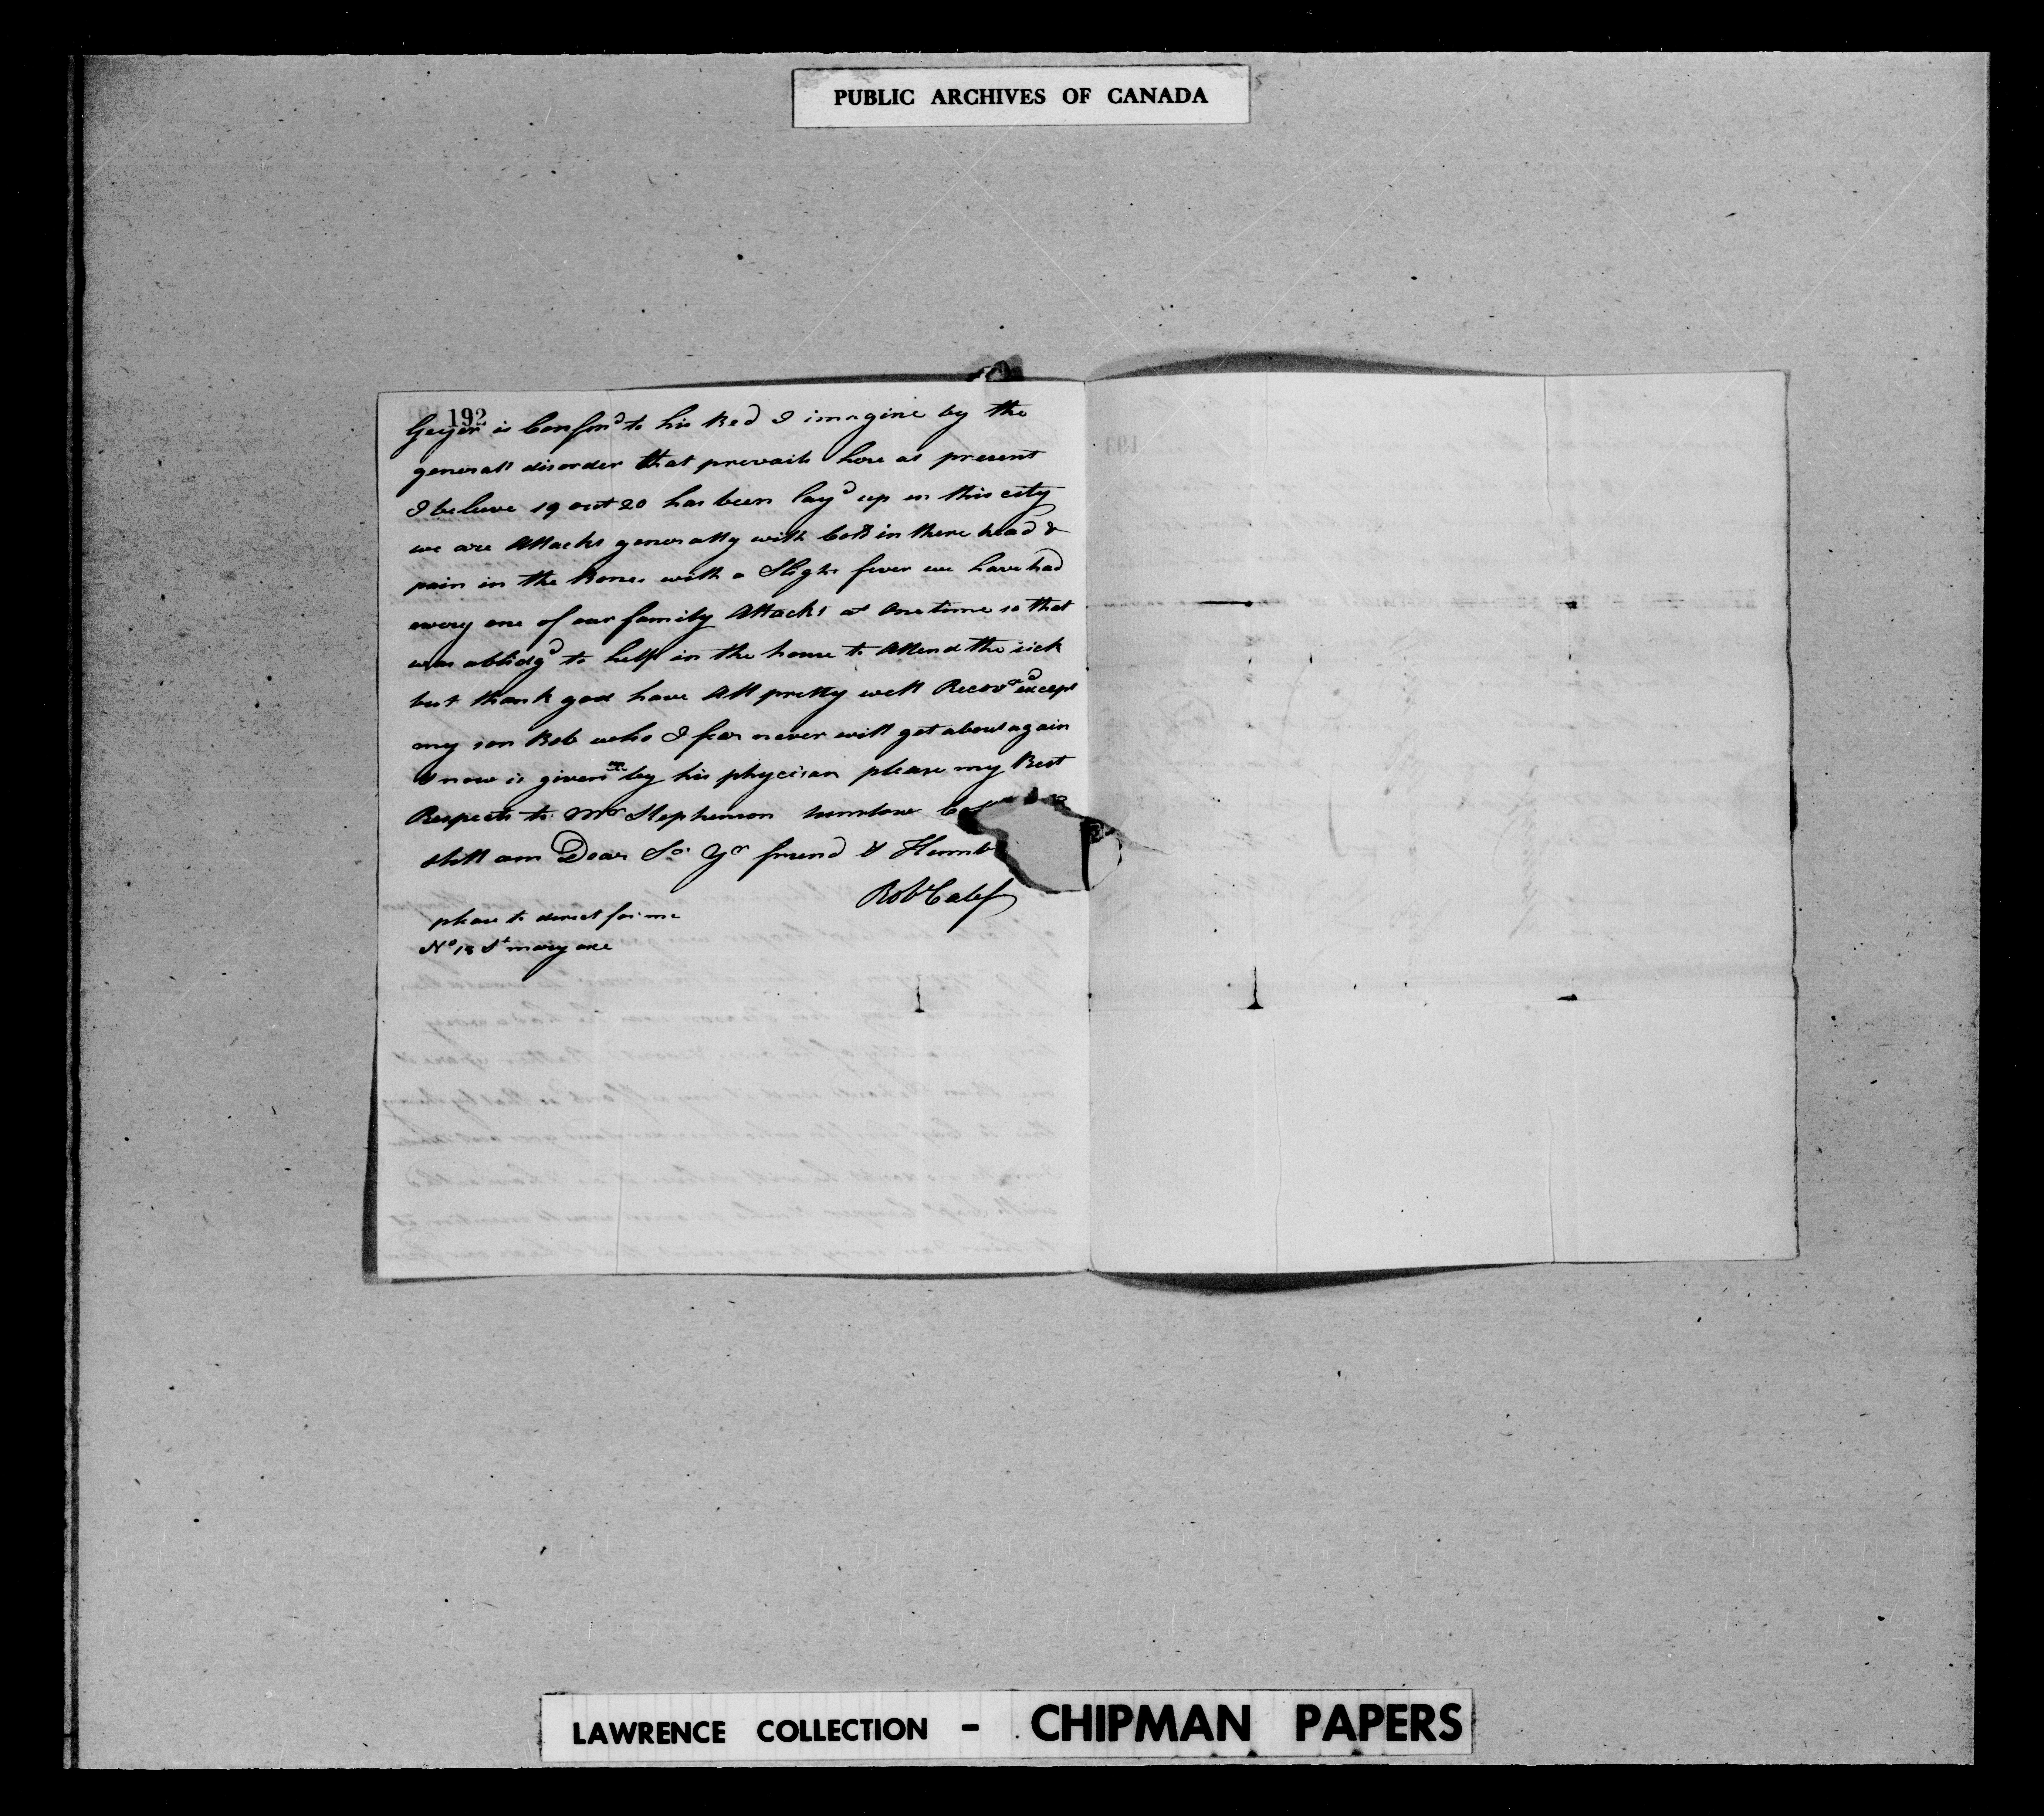 PUBLIC ARCHIVES OF CANADA
192
Geyer is Confin'd to his Bed I imagine by the
generall disorder that prevails here at present
I beleive 19 out 20 has been lay'd up in this city
we are Attackt generally with Cold in there head &
pain in the Bones with a Slight fever we have had
every one of our family Attackt at One time so that
was oblidg'd to help in the house to Attend the sick
but thank god have All pretty well Recovd except
my son Bob who I fear never will get about again
& now is given over by his phycisan please my Best
Respects to Mr Stephenson winslow
still am Dear Sr Yr friend & Humb
Robt Calef
please to direct for me
No 13 St mary axe
193
LAWRENCE COLLECTION - CHIPMAN PAPERS